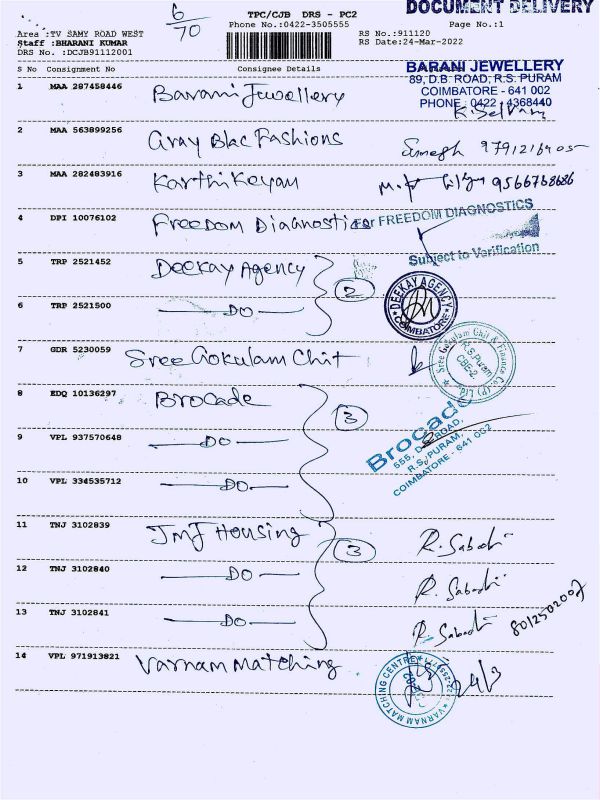 6
70
TPC/CJB DRS - PC2
DOCUMENT DELIVERY
Phone No.:0422-3505555
Page No.:1
Area :TV SAMY ROAD WEST
RS No.:911120
Staff :BHARANI KUMAR
RS Date:24-Mar-2022
DRS No. :DCJB91112001
S No Consignment No
Consignee Details
BARANI JEWELLERY
89, D.B. ROAD, R.S. PURAM
COIMBATORE - 641 002
PHONE : 0422 - 4368440
1 MAA 287458446 Barani Jewellery
K. Selvam
2 MAA 563899256 Gray Blac Fashions
3 MAA 282483916 Karthikeyan
9566768686
4 DPI 10076102 Freedom Diagnostics
For FREEDOM DIAGNOSTICS
Subject to Verification
5 TRP 2521452 Deekay Agency
2
DEEKAY AGENCY
COIMBATORE
6 TRP 2521500 DO
7 GDR 5230059 Sree Gokulam Chit
Sree Gokulam Chit & Finance Co. (P) Ltd
R.S. Puram
CBE-2
8 EDQ 10136297 Brocade
3
Brocade
555, D.B. ROAD,
R.S. PURAM,
COIMBATORE - 641 002
9 VPL 937570648 DO
10 VPL 334535712 DO
11 TNJ 3102839 JMJ Housing
3
R. Sabathi
12 TNJ 3102840 DO
R. Sabathi
13 TNJ 3102841 DO
R. Sabathi
14 VPL 971913821 Varnam Matching
VARNAM MATCHING CENTRE
24/3